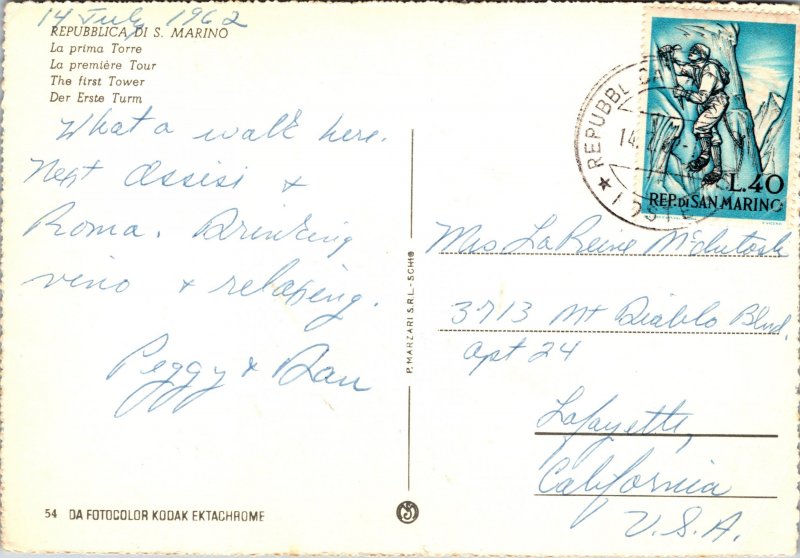 14 July 1962
REPUBBLICA DI S. MARINO
La prima Torre
La première Tour
The first Tower
Der Erste Turm
What a walk here.
Next Assisi &
Roma. Drinking
vino & relaxing.
Peggy & Dan
54 DA FOTOCOLOR KODAK EKTACHROME
P. MARZARI S.R.L. - SCHIO
REPUBBLICA
14.
L.40
REP. DI SAN MARINO
Mrs LaReine McIntosh
3713 Mt Diablo Blvd.
Apt 24
Lafayette,
California
U.S.A.